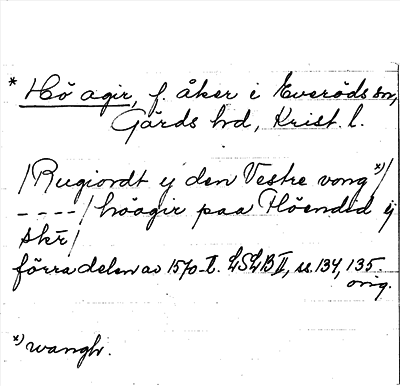 * Hö agir, f. åker i Everöds sn,
Gärds hd, Krist. l.
/Rugiordt ij den Vestre vong *)/
----/ höagir paa Höended ij
skr̄/
förra delen av 1570-t. LSLB II, ss. 134, 135.
orig.
*) wangh.